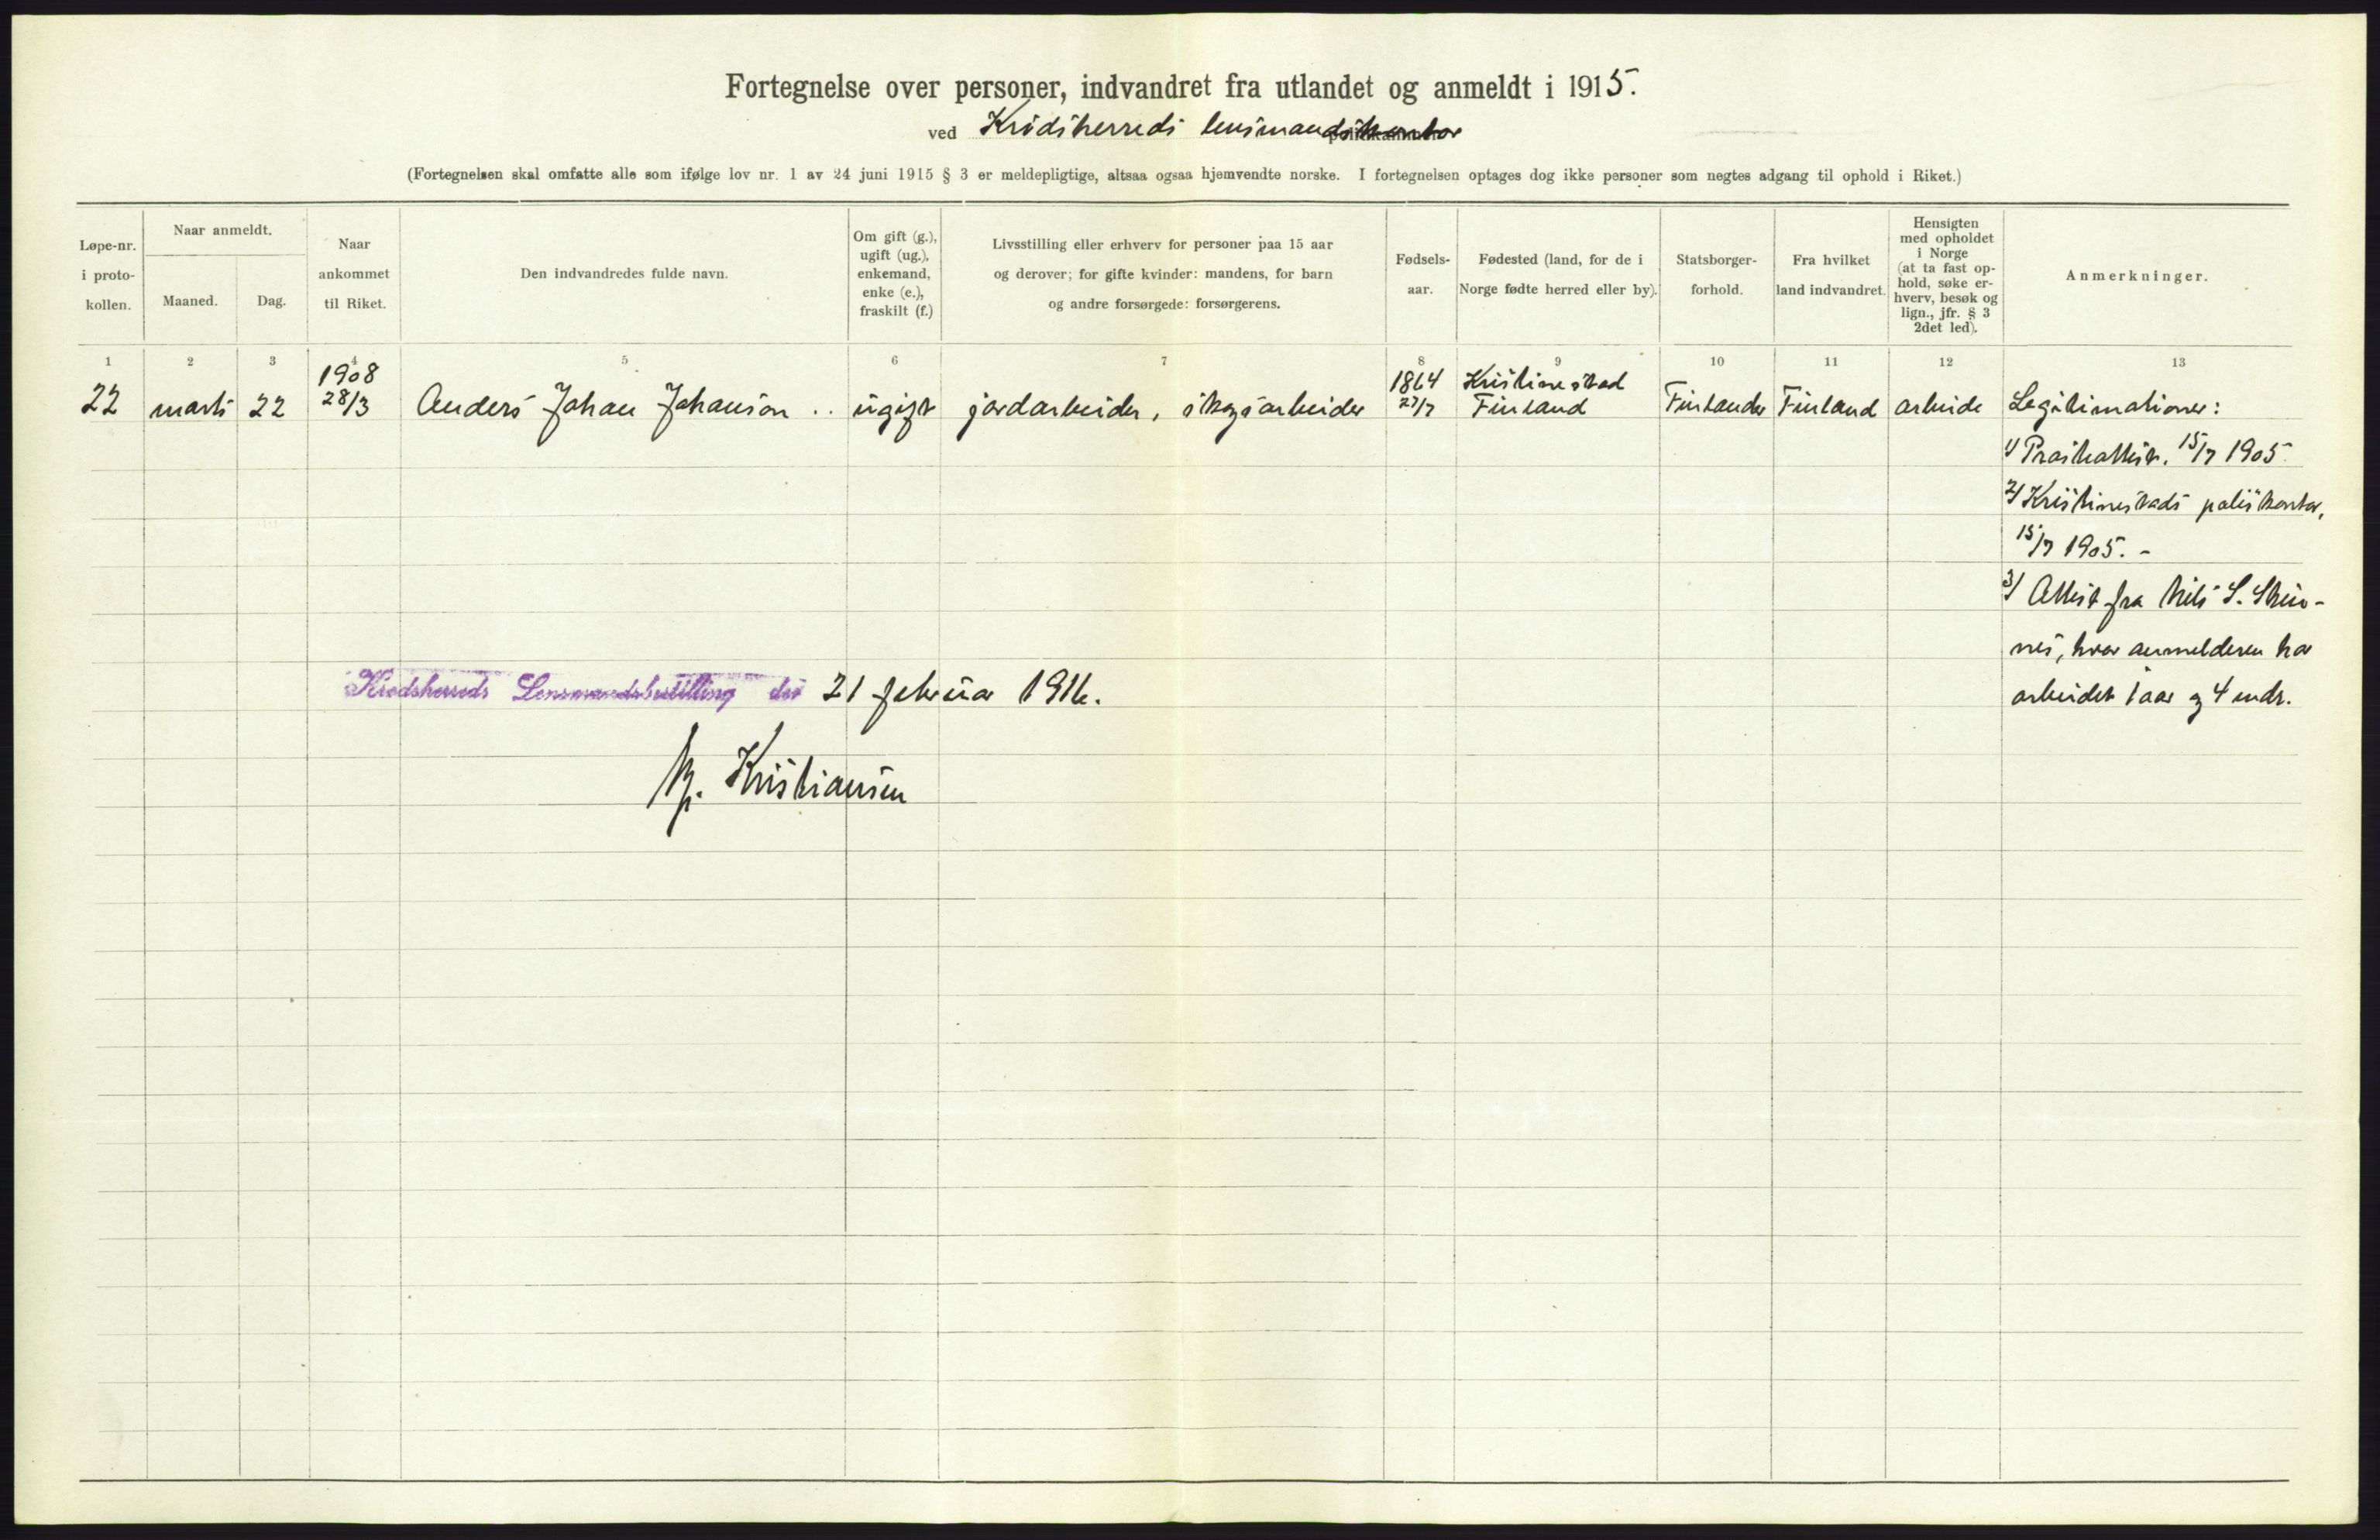 Fortegnelse over personer, indvandret fra utlandet og anmeldt i 1915.
ved Krødsherreds lensmandskontor
(Fortegnelsen skal omfatte alle som ifølge lov nr. 1 av 24 juni 1915 § 3 er meldepligtige, altsaa ogsaa hjemvendte norske. I fortegnelsen optages dog ikke personer som negtes adgang til ophold i Riket.)
Løpe-nr.
i proto-
kollen.
Naar anmeldt.
Maaned.
Dag.
Naar
ankommet
til Riket.
Den indvandredes fulde navn.
Om gift (g.),
ugift (ug.),
enkemand,
enke (e.),
fraskilt (f.)
Livsstilling eller erhverv for personer paa 15 aar
og derover; for gifte kvinder: mandens, for barn
og andre forsørgede: forsørgerens.
Fødsels-
aar.
Fødested (land, for de i
Norge fødte herred eller by).
Statsborger-
forhold.
Fra hvilket
land indvandret.
Hensigten
med opholdet
i Norge
(at ta fast op-
hold, søke er-
hverv, besøk og
lign., jfr. § 3
2det led).
Anmerkninger.
1 2 3 4 5 6 7 8 9 10 11 12 13
1908 1864 Kristinestad
22 marts 22 28/3 Anders Johan Johanson .. ugift jordarbeider, skogsarbeider 27/7 Finland Finlender Finland arbeide Legitimationer:
1) Prestattest. 15/7 1905.
2) Kristinestads poliskontor,
15/7 1905. -
3) Attest fra Nils S.
nes, hvor anmelderen har
arbeidet 1 aar og 4 mdr.
Krødsherreds Lensmandsbestilling den 21 februar 1916.
Kristiansen